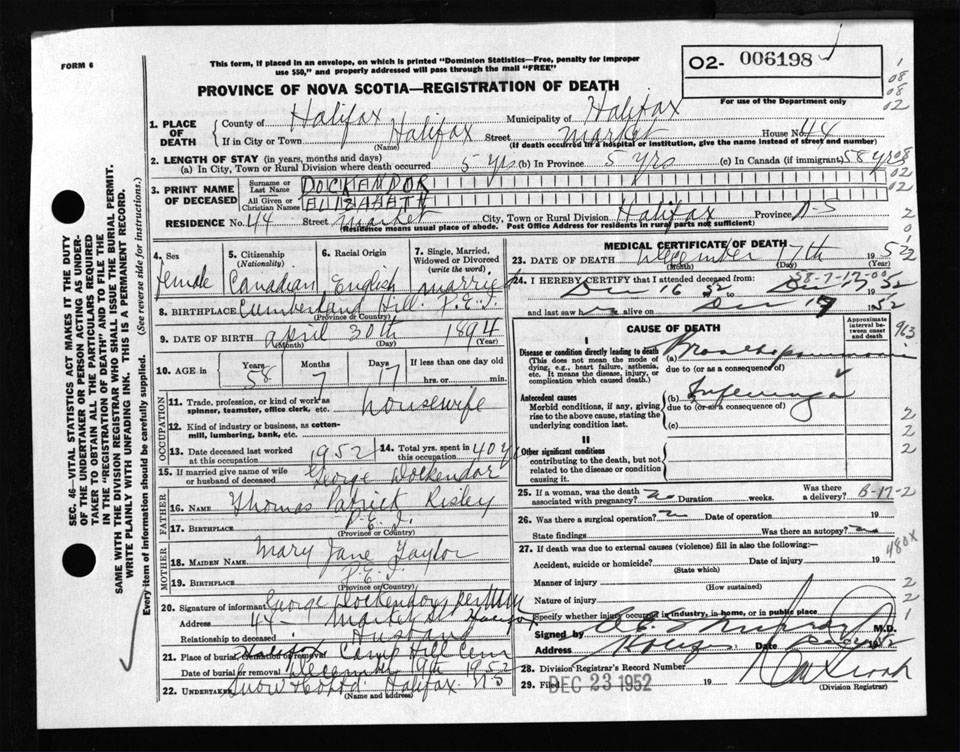 FORM 6
This form, if placed in an envelope, on which is printed "Dominion Statistics—Free, penalty for improper
use $50," and properly addressed will pass through the mail "FREE"
O2- 006198
For use of the Department only
PROVINCE OF NOVA SCOTIA—REGISTRATION OF DEATH
1. PLACE OF DEATH
County of Halifax Municipality of Halifax
If in City or Town Halifax Street Market House No. 44
(Name) (If death occurred in a hospital or institution, give the name instead of street and number)
2. LENGTH OF STAY (in years, months and days)
(a) In City, Town or Rural Division where death occurred 5 yrs (b) In Province 5 yrs (c) In Canada (if immigrant) 58 yrs
3. PRINT NAME OF DECEASED
Surname or Last Name DOCKANDOR
All Given or Christian Names ELIZABATH
RESIDENCE No. 44 Street Market City, Town or Rural Division Halifax Province N-S
(Residence means usual place of abode. Post Office Address for residents in rural parts not sufficient)
4. Sex female
5. Citizenship (Nationality) Canadian
6. Racial Origin English
7. Single, Married, Widowed or Divorced (write the word) married
8. BIRTHPLACE Cumberland Hill P.E.I.
(Province or Country)
9. DATE OF BIRTH April 30th 1894
(Month) (Day) (Year)
10. AGE in Years 58 Months 7 Days 17 If less than one day old
hrs. or min.
OCCUPATION
11. Trade, profession, or kind of work as spinner, teamster, office clerk, etc. housewife
12. Kind of industry or business, as cotton-mill, lumbering, bank, etc.
13. Date deceased last worked at this occupation 1952
14. Total yrs. spent in this occupation 40 yrs
15. If married give name of wife or husband of deceased George Dockendor
FATHER
16. NAME Thomas Patrick Risley
17. BIRTHPLACE P.E.I.
(Province or Country)
MOTHER
18. MAIDEN NAME Mary Jane Taylor
19. BIRTHPLACE P.E.I.
(Province or Country)
20. Signature of informant George Dockendor
Address 44 - Market St Halifax
Relationship to deceased Husband
21. Place of burial, cremation or removal Halifax Camp Hill Cem
Date of burial or removal December 19th 1952
22. Undertaker Snow & Co Ltd. Halifax N S
(Name and address)
MEDICAL CERTIFICATE OF DEATH
23. DATE OF DEATH December 17th 1952
(Month) (Day) (Year)
58-7-17-00
24. I HEREBY CERTIFY that I attended deceased from:
Dec 16 52 to Dec 17 52
and last saw her alive on Dec 17 1952
CAUSE OF DEATH
Approximate interval between onset and death
I
Disease or condition directly leading to death (a) Bronchopneumonia
(This does not mean the mode of dying, e.g., heart failure, asthenia, etc. It means the disease, injury, or complication which caused death.)
due to (or as a consequence of)
Antecedent causes (b) Influenza
Morbid conditions, if any, giving rise to the above cause, stating the underlying condition last.
due to (or as a consequence of)
(c)
II
Other significant conditions
contributing to the death, but not related to the disease or condition causing it.
25. If a woman, was the death associated with pregnancy? no Duration weeks. Was there a delivery?
6-17-2
26. Was there a surgical operation? no Date of operation 19
State findings Was there an autopsy? no
27. If death was due to external causes (violence) fill in also the following:—
480X
Accident, suicide or homicide? Date of injury 19
(State which)
Manner of injury
(How sustained)
Nature of injury
Specify whether injury occurred in industry, in home, or in public place
Signed by M.D.
Address Date 19
28. Division Registrar's Record Number
29. Filed DEC 23 1952 19
(Division Registrar)
SEC. 46—VITAL STATISTICS ACT MAKES IT THE DUTY
OF THE UNDERTAKER OR PERSON ACTING AS UNDER-
TAKER TO OBTAIN ALL THE PARTICULARS REQUIRED
IN THE "REGISTRATION OF DEATH" AND TO FILE THE
SAME WITH THE DIVISION REGISTRAR WHO SHALL ISSUE THE BURIAL PERMIT.
WRITE PLAINLY WITH UNFADING INK. THIS IS A PERMANENT RECORD.
Every item of information should be carefully supplied. (See reverse side for instructions.)